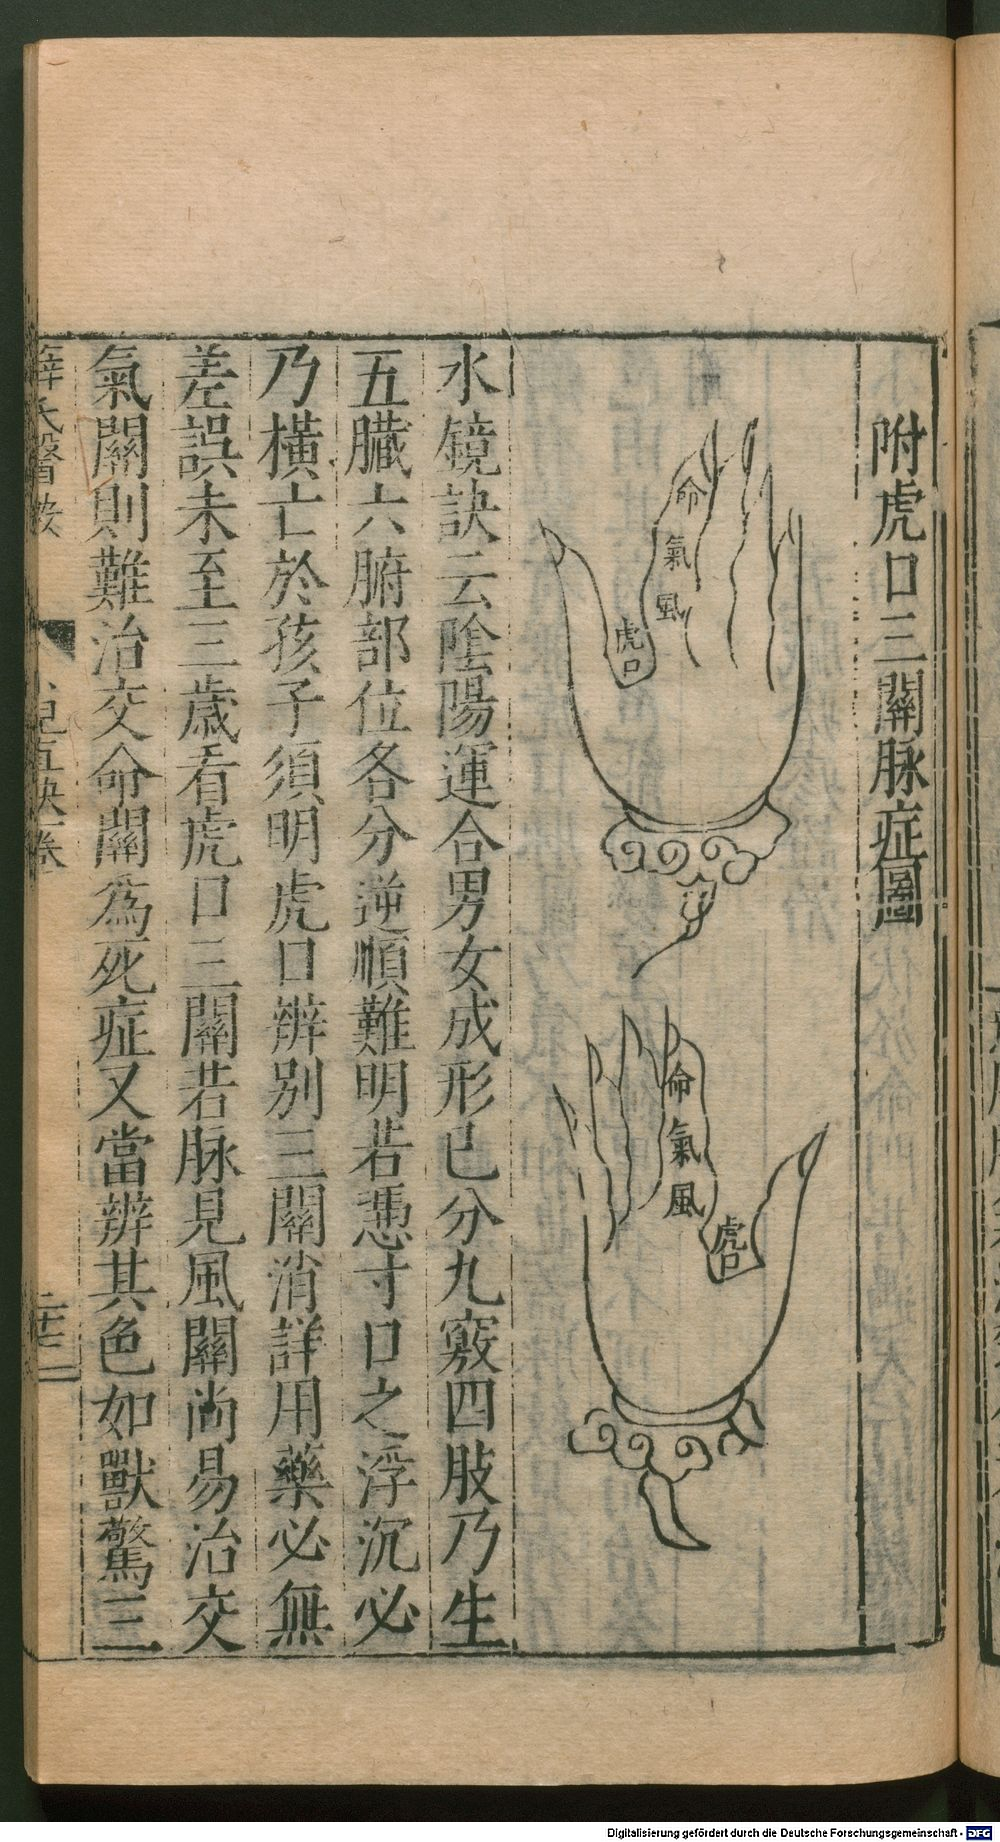 附虎口三關脉症圖
命
氣
風
虎口
命
氣
風
虎口
水鏡訣云陰陽運合男女成形已分九竅四肢乃生
五臟六腑部位各分逆順難明若慿寸口之浮沉必
乃横亡於孩子須明虎口辨别三關消詳用藥必無
差誤未至三歲看虎口三關若脉見風關尚易治交
氣關則難治交命關為死症又當辨其色如獸驚三
薛氏醫按
兒直訣卷
Digitalisierung gefördert durch die Deutsche Forschungsgemeinschaft - DFG